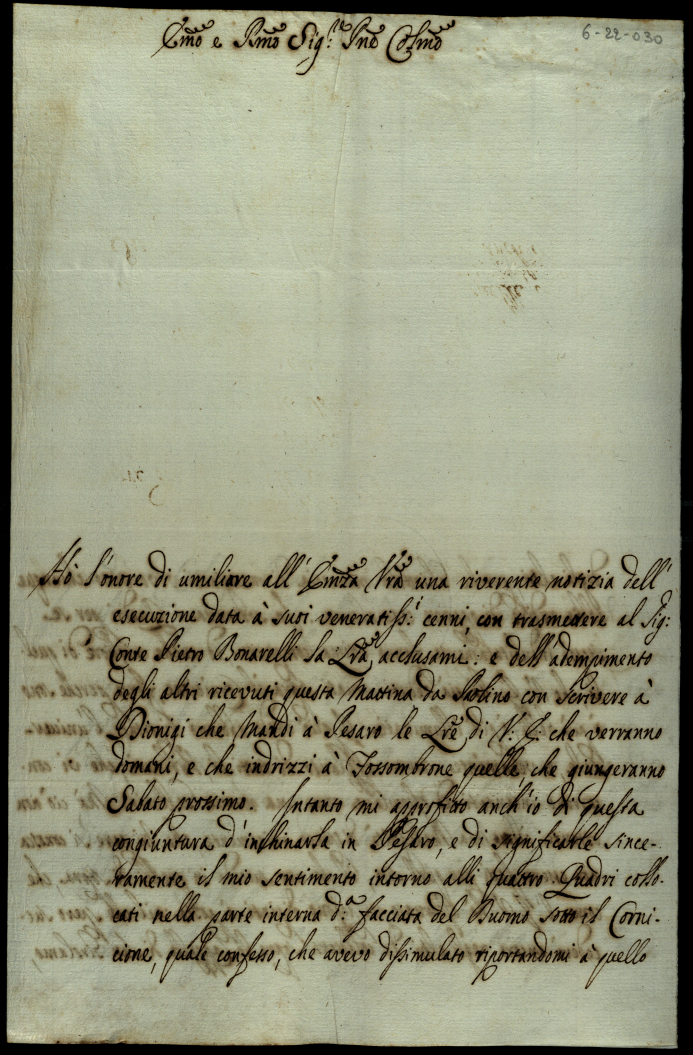 Emo e Rmo Sig.re Pne Colmo
6-22-030
Hò l'onore di umiliare all'Emza Vra una riverente notizia dell'
esecuzione data à suoi veneratiss:i cenni, con trasmettere al Sig:
Conte Pietro Bonarelli la Lra acclusami: e dell'adempimento
degli altri ricevuti questa Mattina da Paolino con scrivere à
Dionigi che Mandi à Pesaro le Lre di V: E: che verranno
domani, e che indrizzi à Fossombrone quelle, che giungeranno
Sabato prossimo. Intanto mi approfitto anch'io di questa
congiuntura d'inchinarla in Pesaro, e di significarle since-
ramente il mio sentimento intorno alli quattro Quadri collo-
cati nella parte interna d:a facciata del Duomo sotto il Corni-
cione, quale confesso, che avevo dissimulato riportandomi à quello